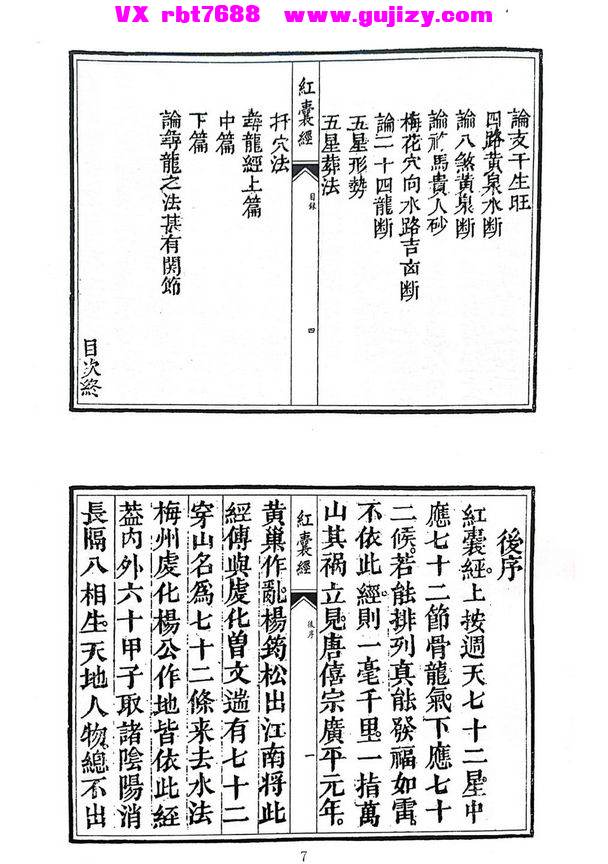 VX rbt7688 www.gujizy.com
論支干生旺
四路黃泉水断
論八煞黃泉断
論祿馬貴人砂
梅花穴向水路吉凶断
論二十四龍断
五星形勢
五星葬法
紅囊經
目錄
四
扦穴法
尋龍經上篇
中篇
下篇
論尋龍之法甚有関節
目次終
後序
紅囊經上按週天七十二星中
應七十二節骨龍氣下應七十
二候。若能排列真能發福如雷。
不依此經。則一毫千里。一指萬
山其禍立見。唐僖宗廣平元年。
紅囊經
後序
一
黃巢作亂。楊筠松出江南將此
經傳與虔化曾文遄有七十二
穿山名爲七十二條來去水法
梅州虔化楊公作地皆依此經
葢內外六十甲子取諸陰陽消
長隔八相生。天地人物。總不出
7